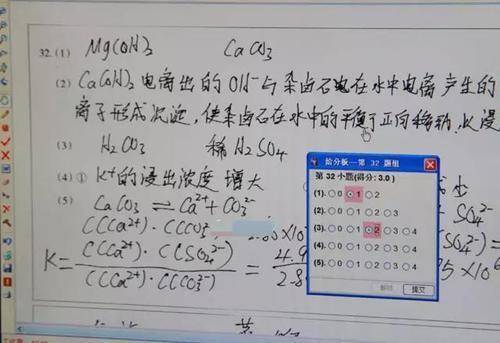 32.(1) Mg(OH)₂ CaCO₃
(2) Ca(OH)₂电离出的OH⁻与杂卤石电在水中电离产生的
离子形成沉淀,使杂卤石在水中的平衡于正向移动,从浸
(3) H₂CO₃ 稀H₂SO₄
(4) ① K⁺的浸出浓度 增大
(5) CaCO₃ ⇌ Ca²⁺+CO₃²⁻ SO₄²⁻
C(Ca²⁺)·C(CO₃ ×10
K= C(Ca²⁺)·C(SO₄²⁻) = 4.9 =
C(Ca²⁺)·C(CO₃²⁻) 2.8 ×10
给分板—第 32 题组
第 32 小题(得分: 3.0)
(1). 0 1 2
(2). 0 1 2 3
(3). 0 1 2 3 4
(4). 0 1 2 3
(5). 0 1 2 3 4
提交